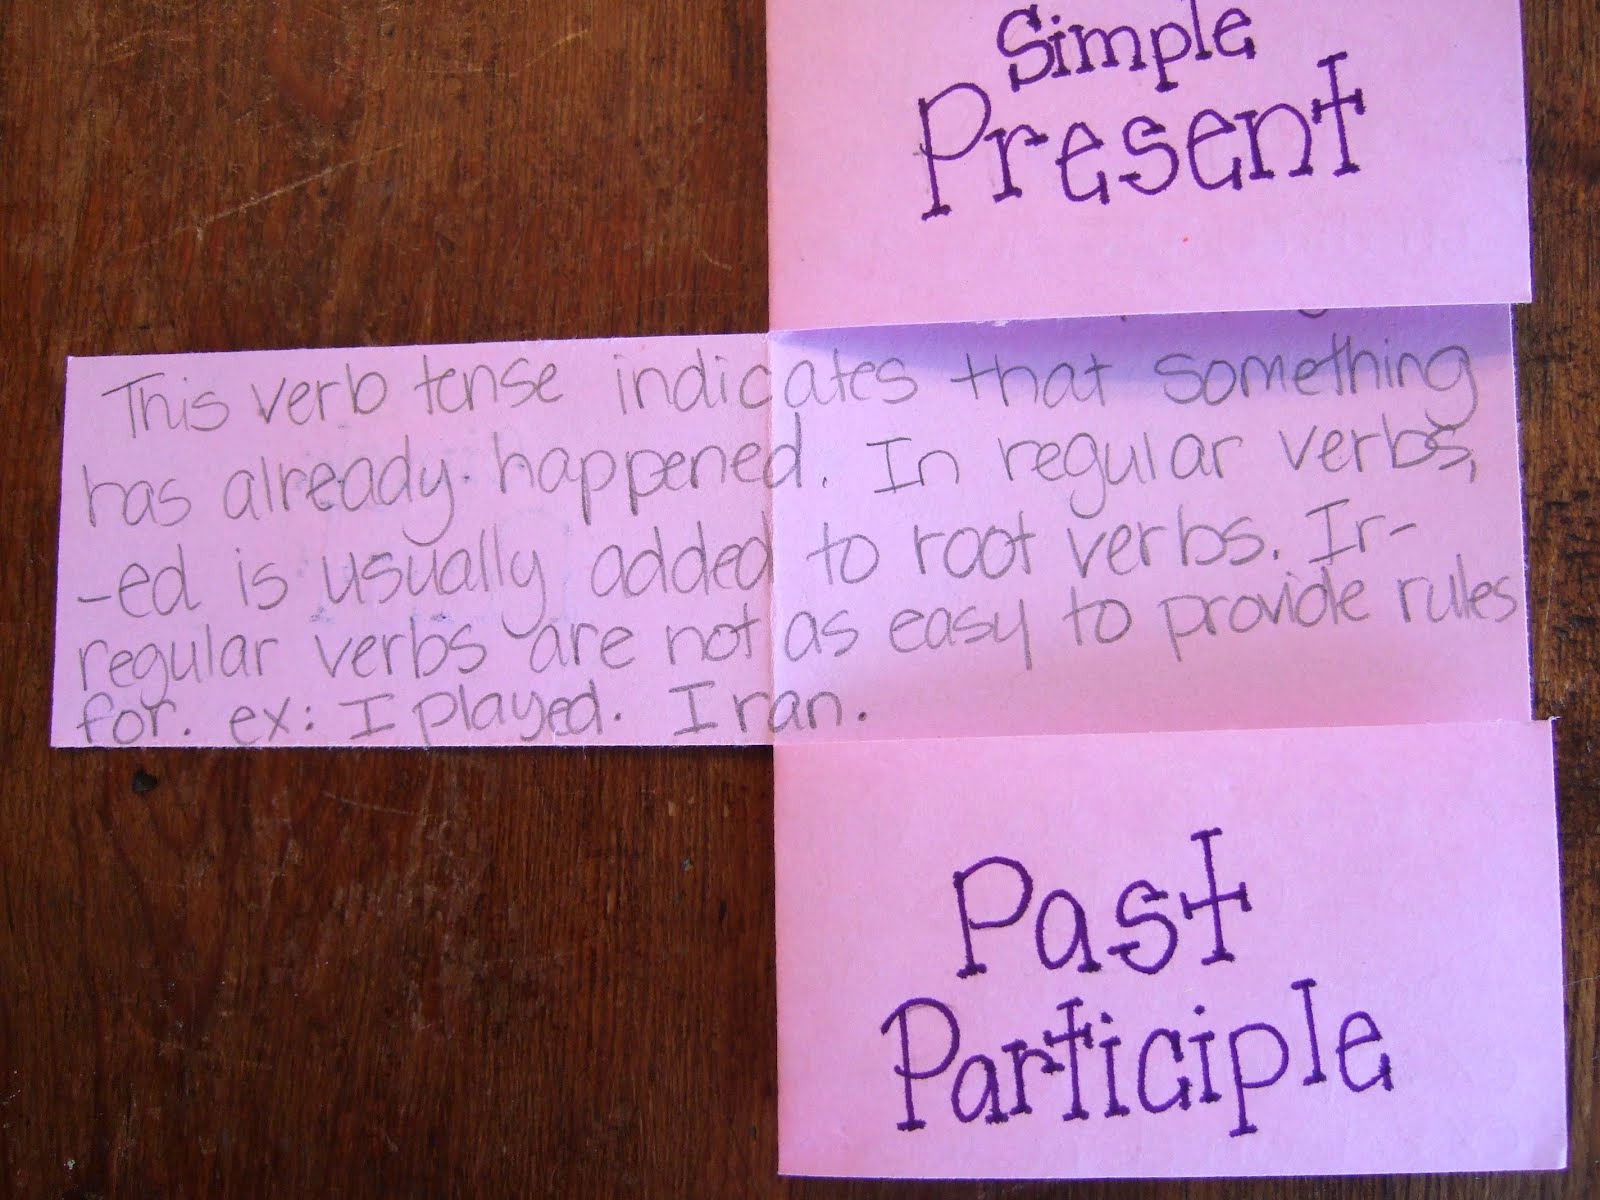 Simple
Present
This verb tense indicates that something
has already happened. In regular verbs,
-ed is usually added to root verbs. Ir-
regular verbs are not as easy to provide rules
for. ex: I played. I ran.
Past
Participle